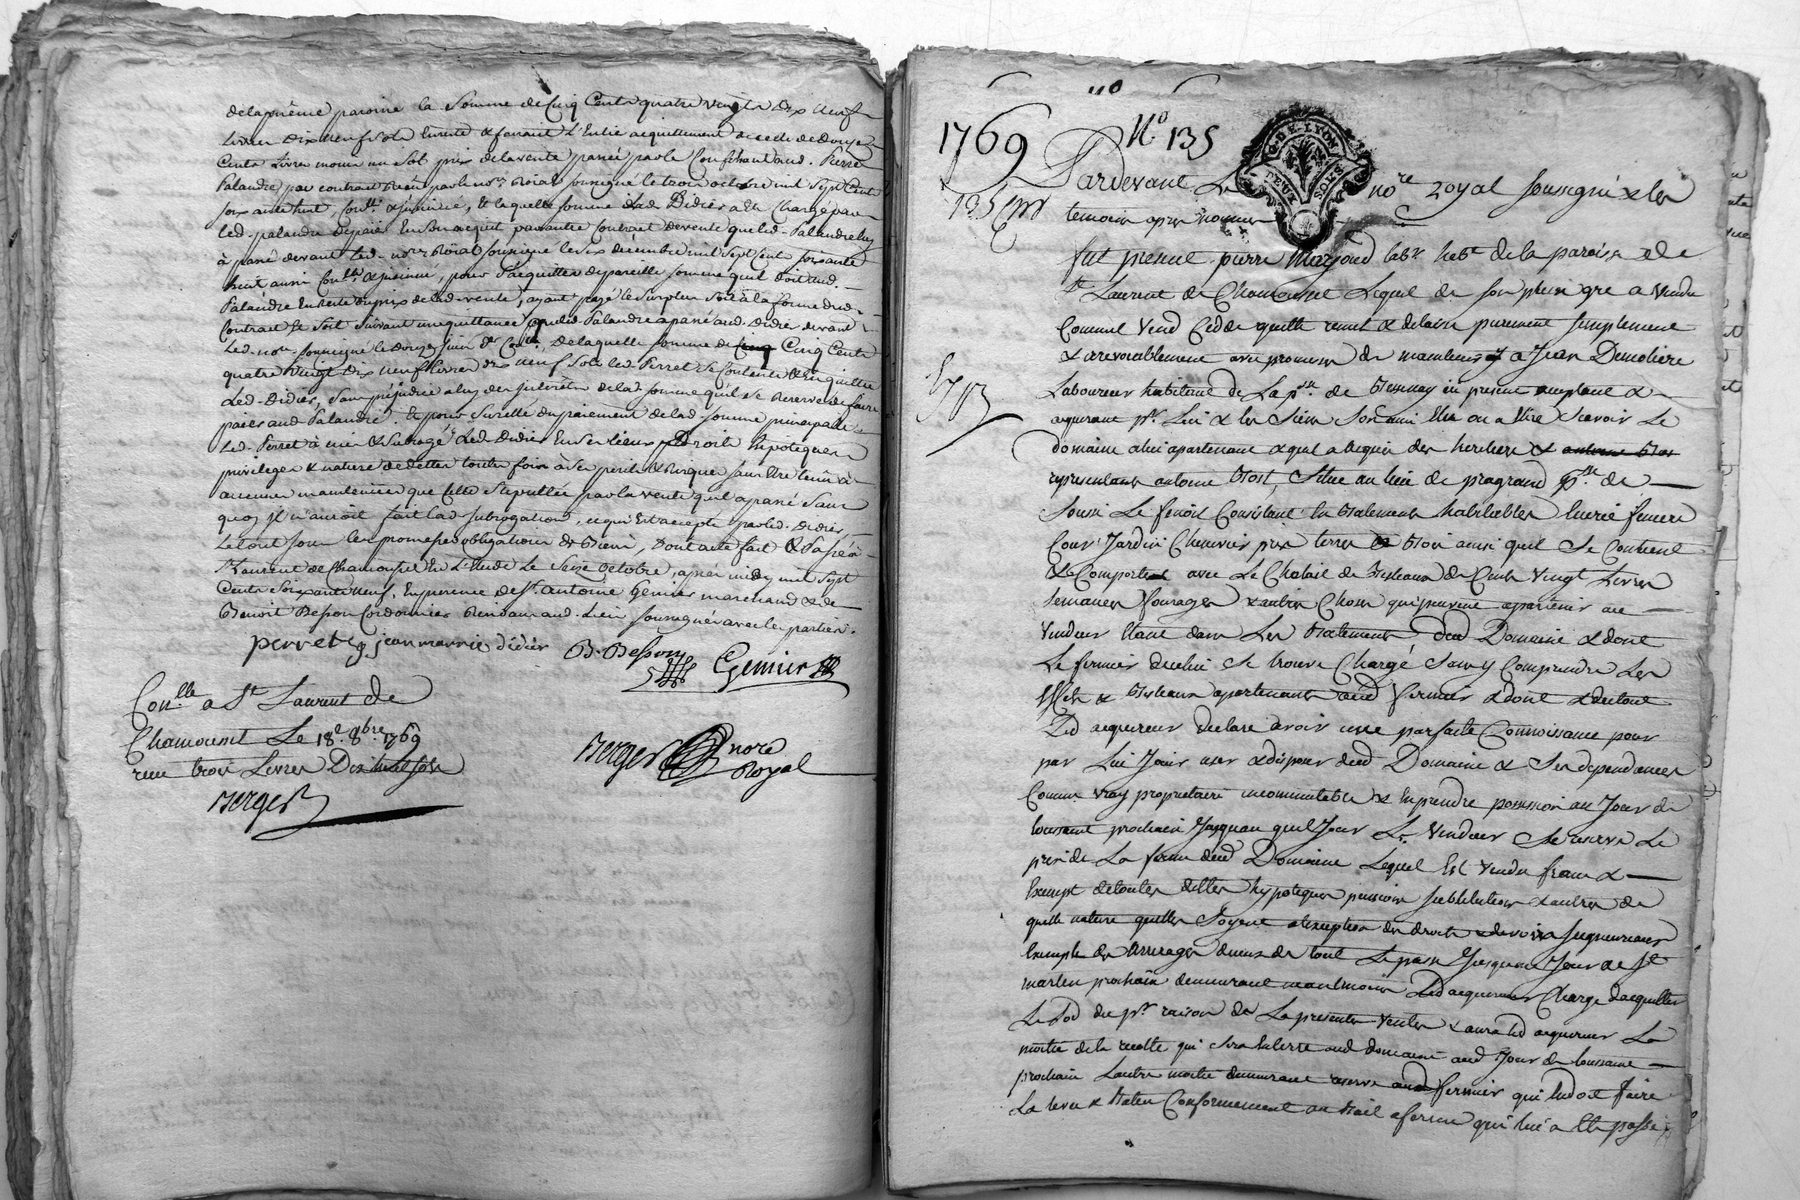 de la meme paroisse la somme de Cinq Cents quatre vingts dix neuf
Livres dix neuf sols En reste & faisant l'Entier acquittement de celle de Douze
Cents Livres moins un sol prix de la vente passée par le Confessant aud. Pierre
Palandre par contract Reçu par le nore Roial soussigné le trois octobre mil sept Cent
soixante huit, Conllé & insinué, & laquelle somme led. Didier a été Chargé par
led. palandre de paier En son acquit par autre Contract de vente que led. Palandre luy
à passé devant led. nore Roial soussigné le six décembre mil sept Cent soixante
huit aussi Conllé & insinué, pour s'acquitter de pareille somme qu'il doit aud.
Palandre En reste du prix de lad. vente, ayant payé le surplus soit à la forme dud.
Contract & soit suivant une quittance que led. Palandre a passé aud. Didier devant
Led. nore soussigné le Douze juin dr Conllé, de laquelle somme de Cinq Cents
quatre vingt dix neuf livres dix neuf sols led. Perret se Contente & En quitte
Led. Didier, sans préjudice a luy des interets de lad. somme qu'il se reserve de faire
paier aud. Palandre. Et pour sureté du paiement de lad. somme principale
Led. Perret à mis & subrogé Led. Didier En ses lieux Droits hipoteques
privileges & nature de dettes toutes fois à ses perils & risques sans Etre tenu à
aucune maintenue que Celle stipullée par la vente qu'il a passé sans
quoy il n'auroit fait lad. subrogation, ce qui Est accepté par led. Didier
Le tout sous les promesses obligations de Biens, Dont acte fait & Passé à
St Laurent de Chamousset En L'Etude Le Seize octobre, après midy mil sept
Cents Soixante neuf, En presence de Sr. antoine Génier marchand & de
Benoit Besson Cordonnier Residants aud. Lieu soussignés avec les parties.
perret jean marie didier B. Besson Genier
Conllé a St Laurent de
Chamousset Le 18e 8bre 1769
reçu trois Livres Dix huit sols
Berger
Berger nore
Royal
110
1769 No 135
G. DE LYON
DEUX SOLS
Pardevant Le nore royal soussigné & les
temoins apres nommés
fut present pierre Margand labr habt de la paroisse de
St Laurent de Chamousset Lequel de son plein gré a vendu
Comme vend Cedde quitte remet & delaisse purement simplement
& irrevocablement avec promesse de maintenir a Jean Demoliere
Laboureur habitant de La psse de Bessenay ici present acceptant &
aquerant pr Lui & les Siens Son ami Elu ou a Elire Scavoir Le
domaine a lui apartenant & quil a acquis des heritiers & antoine Bos
representants antoine Bost, Situé au lieu de pragrand psse de
Souzi Le fenoil Consistant En Batiments habitables Ecurie feniere
Cour Jardin Cheneviers prés terres & Bois ainsi quil Se Contient
& Se Comporte avec Le Chetail de Bestiaux de Cents Vingt Livres
Semances fourages & autres Choses qui peuvent apartenir au
Vendeur Etant dans Les Batiments dud Domaine & dont
Le fermier dicelui Se trouve Chargé Sans y Comprendre Les
Effets & Bestiaux apartenants aud fermier & dont & du tout
Led aquereur declare avoir une parfaite Connoissance pour
par Lui Jouir user & disposer dud Domaine & Ses dependances
Comme vray proprietaire incommutable & En prendre possession au Jour de
toussaint prochain Jusquau quel Jour Le Vendeur Se reserve Le
prix de La ferme dud Domaine Lequel Est Vendu franc &
Exempt de toutes dettes hypoteques pensions Substitutions & autres de
quelle nature quelles Soyent a lexception des droits & devoirs Seigneuriaux
Exempte des arrerages diceux de tout Le passé Jusquau Jour de St
martin prochain demeurant neantmoins Led aquereur Chargé dacquitter
Le Lod du pr raison de La presente Vente & aura led aquereur La
moitié de la recolte qui Sera En terre aud domaine aud Jour de toussaint
prochain Lautre moitié demeurant reservé aud fermier qui En doit faire
La levée & Batre Conformement au Bail a ferme qui lui a Eté passé